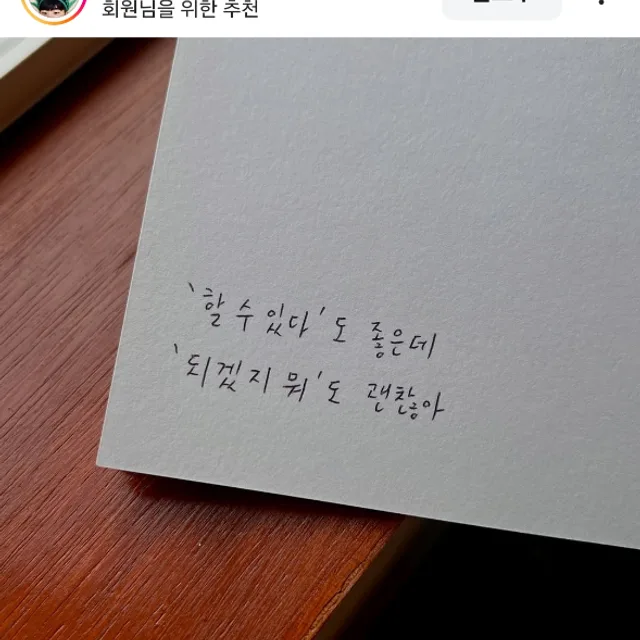 회원님을 위한 추천
'할 수 있다'도 좋은데
'되겠지 뭐'도 괜찮아